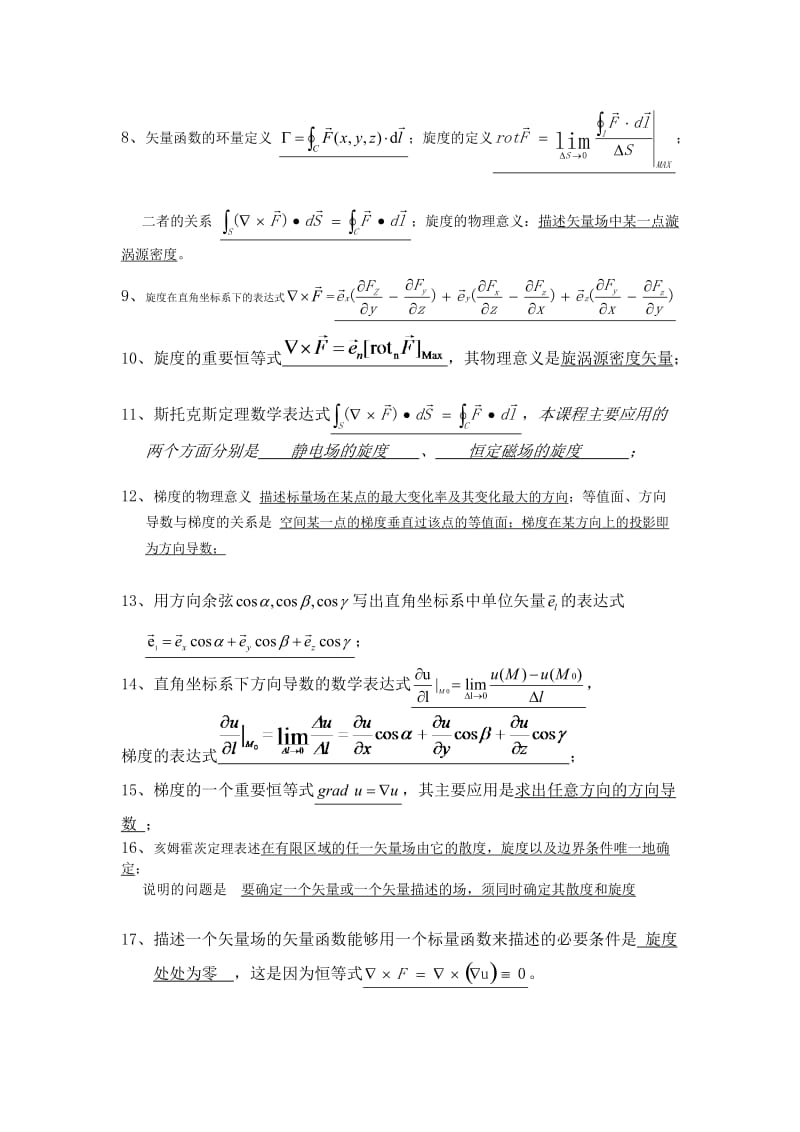 8、矢量函数的环量定义 Γ=∮_C F⃗(x,y,z)·dl⃗；旋度的定义 rotF⃗ = lim_{ΔS→0} (∮_l F⃗·dl⃗)/ΔS |_MAX；
二者的关系 ∫_S(∇×F⃗)•dS⃗ = ∮_C F⃗•dl⃗；旋度的物理意义：描述矢量场中某一点漩
涡源密度。
9、旋度在直角坐标系下的表达式∇×F⃗=e⃗_x(∂F_Z/∂y − ∂F_y/∂z)+e⃗_y(∂F_x/∂z − ∂F_z/∂x)+e⃗_z(∂F_y/∂x − ∂F_z/∂y)
10、旋度的重要恒等式∇×F⃗=e⃗_n[rot_n F⃗]_Max，其物理意义是旋涡源密度矢量；
11、斯托克斯定理数学表达式∫_S(∇×F⃗)•dS⃗ = ∮_C F⃗•dl⃗，本课程主要应用的
两个方面分别是 静电场的旋度 、 恒定磁场的旋度 ；
12、梯度的物理意义 描述标量场在某点的最大变化率及其变化最大的方向；等值面、方向
导数与梯度的关系是 空间某一点的梯度垂直过该点的等值面；梯度在某方向上的投影即
为方向导数；
13、用方向余弦cosα,cosβ,cosγ写出直角坐标系中单位矢量e⃗_l的表达式
e⃗_l=e⃗_x cosα+e⃗_y cosβ+e⃗_z cosγ；
14、直角坐标系下方向导数的数学表达式∂u/∂l|_{M0}=lim_{Δl→0} (u(M)−u(M0))/Δl，
梯度的表达式∂u/∂l|_{M0}=lim_{Δl→0} Δu/Δl=∂u/∂x cosα+∂u/∂y cosβ+∂u/∂z cosγ；
15、梯度的一个重要恒等式grad u=∇u，其主要应用是求出任意方向的方向导
数；
16、亥姆霍茨定理表述在有限区域的任一矢量场由它的散度，旋度以及边界条件唯一地确
定；
说明的问题是 要确定一个矢量或一个矢量描述的场，须同时确定其散度和旋度
17、描述一个矢量场的矢量函数能够用一个标量函数来描述的必要条件是 旋度
处处为零 ，这是因为恒等式∇×F = ∇×(∇u)≡0。